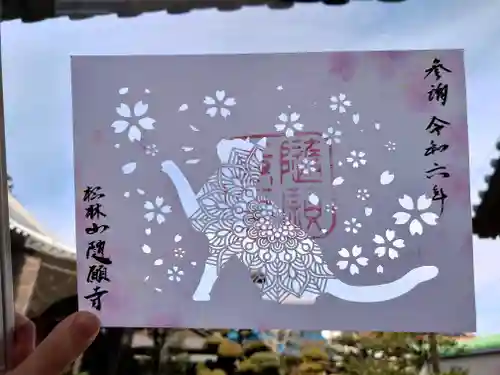 参詣 令和六年
随願
松林山随願寺